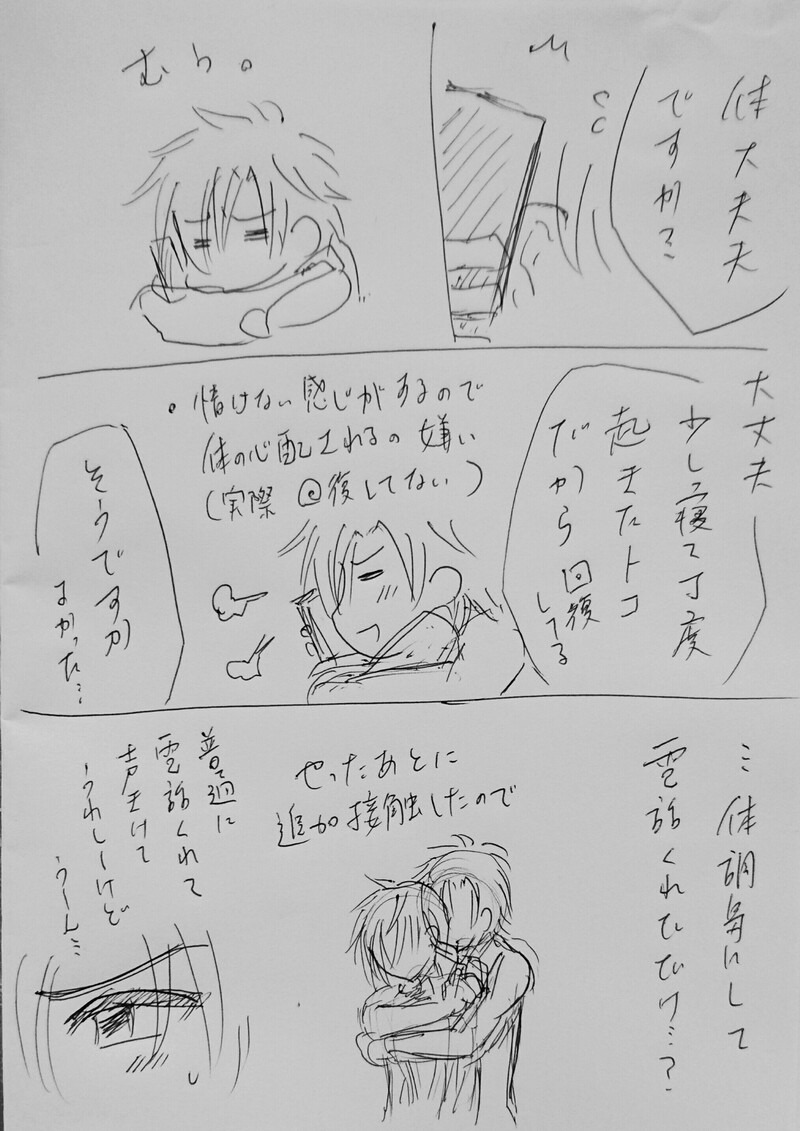 体大丈夫
ですか?
むり。
大丈夫
少し寝て丁度
起きたトコ
だから回復
してる
・情けない感じがするので
体の心配されるの嫌い
(実際回復してない)
そうですか
よかった…
…体調気にして
電話くれただけ…?
やったあとに
追加接触したので
普通に
電話くれて
声きけて
うれしーけど
うーん…